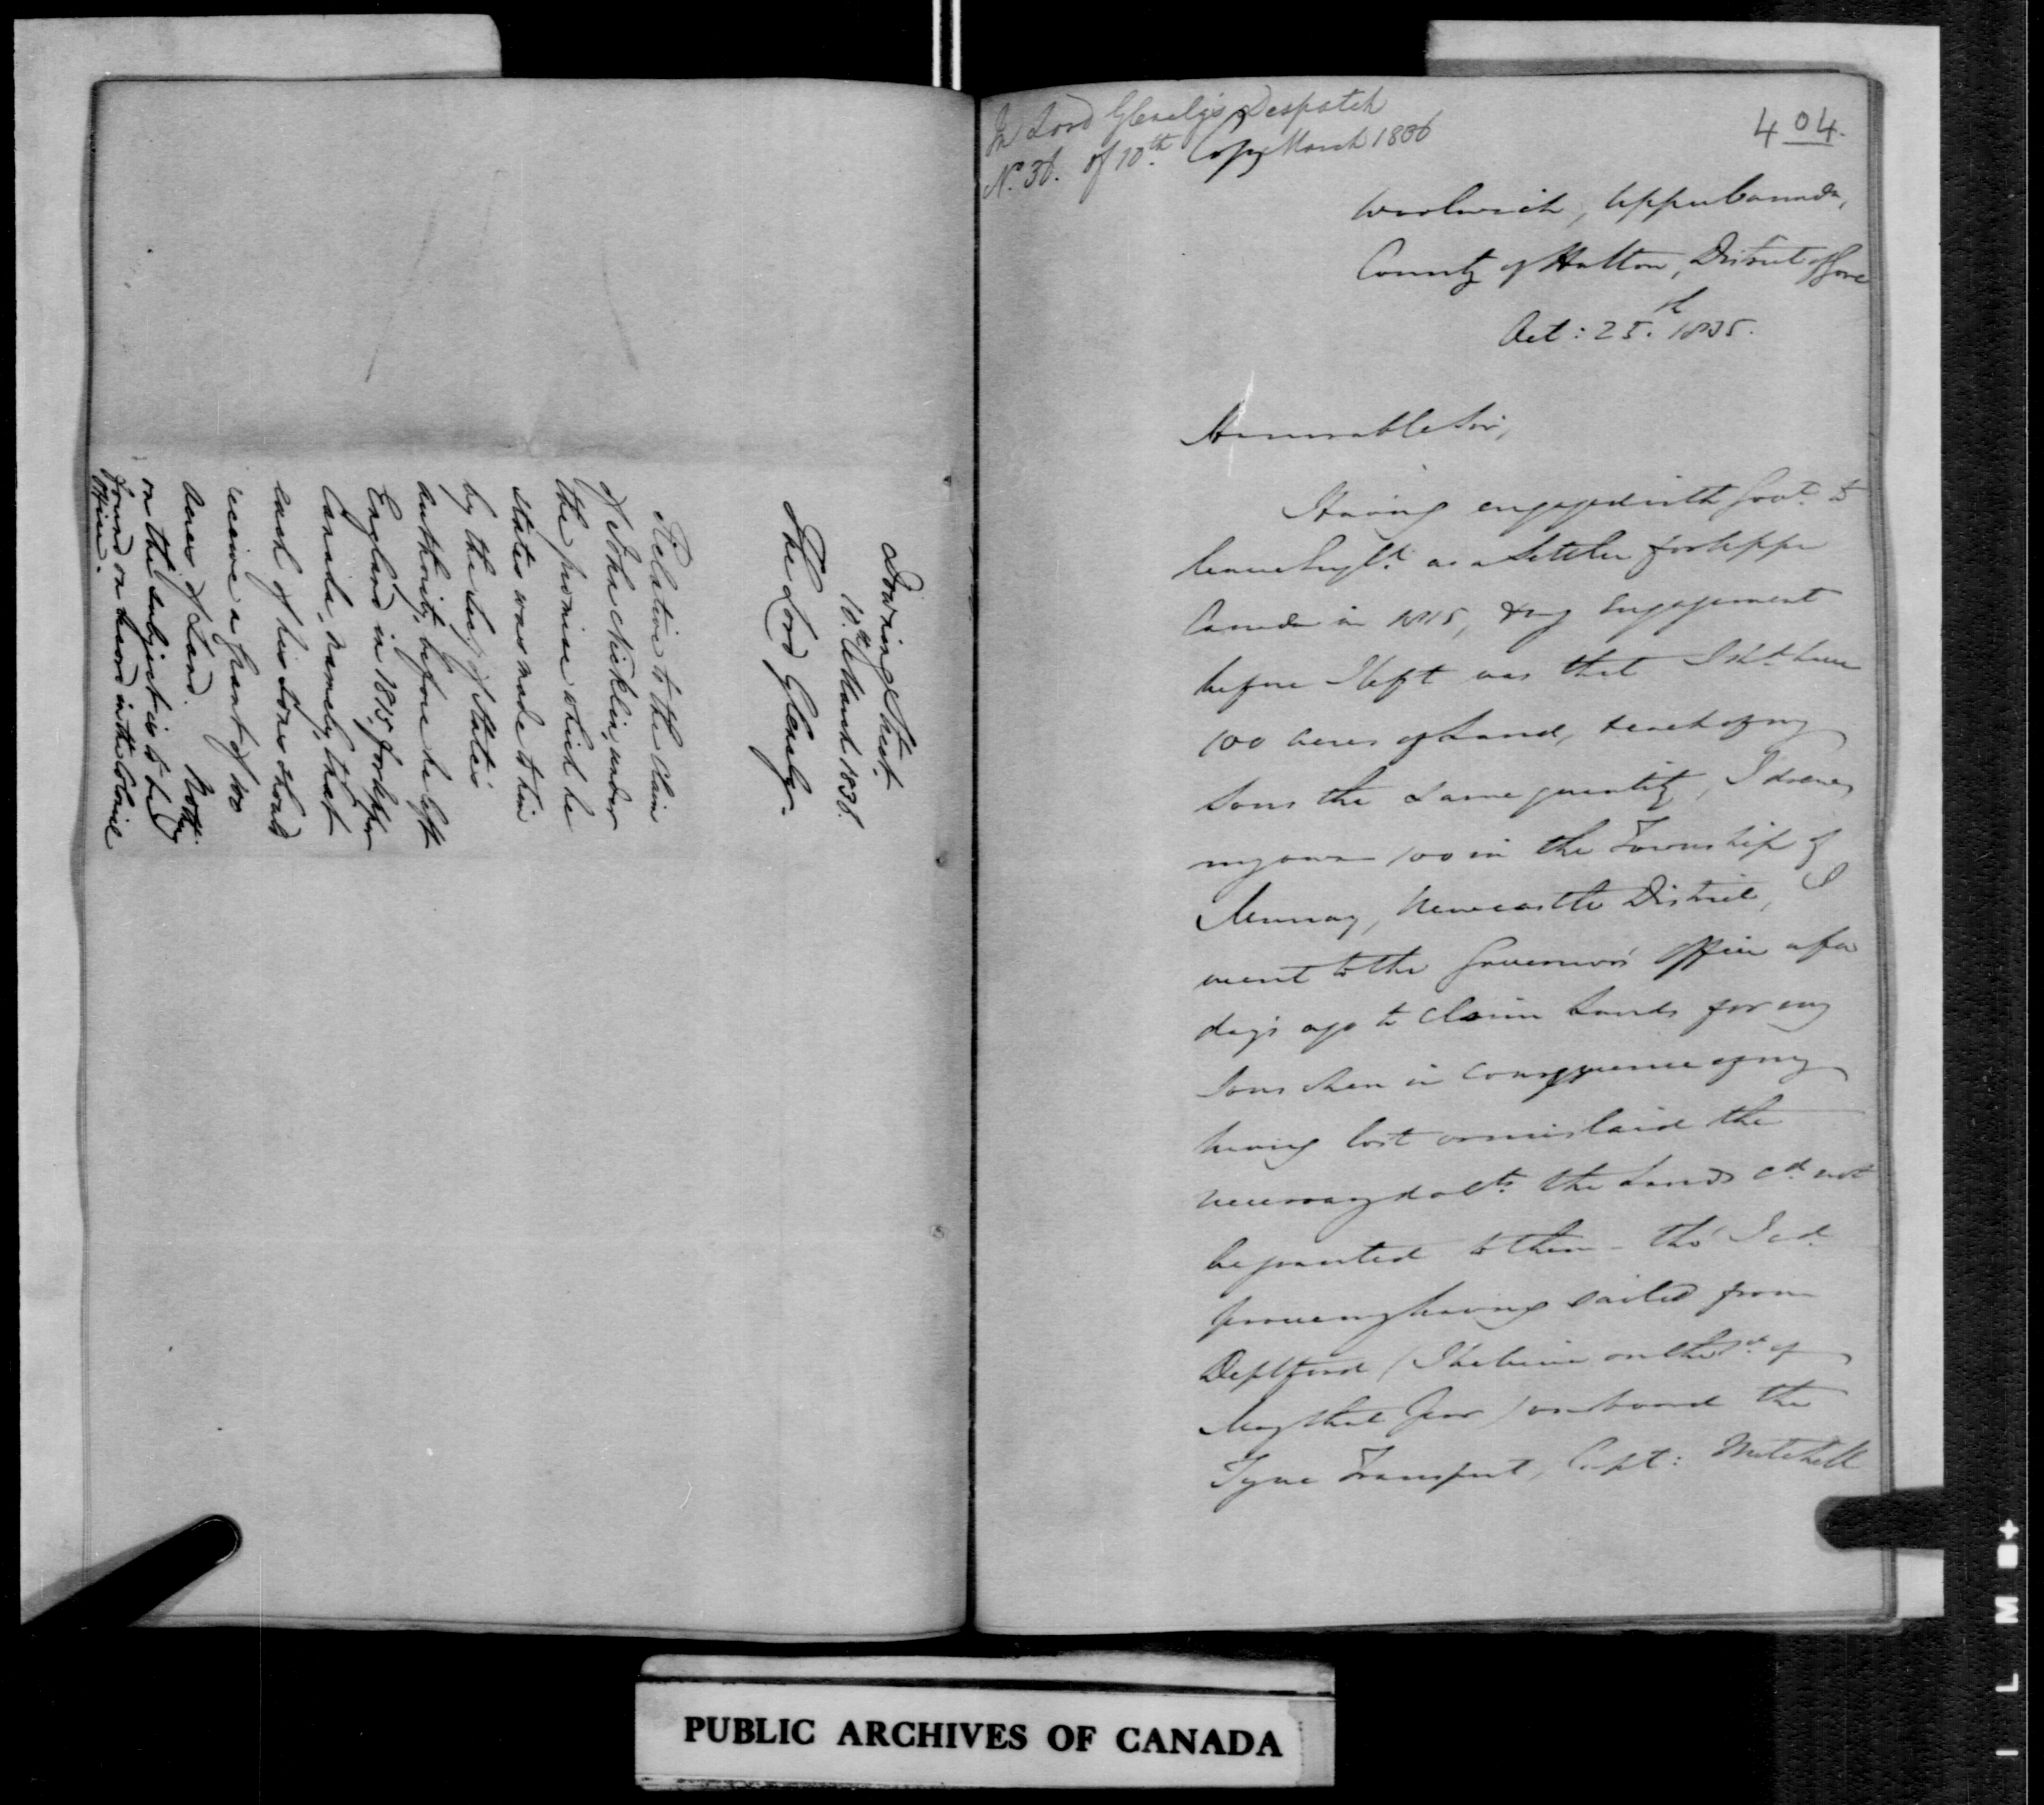 Downing Street.
10th March 1836.
The Lord Glenelg.
Relative to the Claim
of John Nicklin, under
the promise which he
states was made to him
by the Secy of State's
authority, before he left
England in 1815 for Upper
Canada, namely, that
each of his Sons should
receive a grant of 100
Acres of Land. Nothing
on this subject is to be
found on record in the Colonial
Office.
In Lord Glenelg's Despatch
No. 36. of 10th March 1836
Copy
404.
Woolwich, Upper Canada,
County of Halton, District of Gore
Oct: 25th 1835.
Honourable Sir,
Having engaged with Govt. to
leave Engld. as a Settler for Upper
Canada in 1815, & my engagement
before I left was that I shd. have
100 acres of Land, & each of my
Sons the same quantity, I drew
my own 100 in the Township of
Murray, Newcastle District, I
went to the Governor's Office a few
days ago to claim Lands for my
Sons when in consequence of my
having lost or mislaid the
necessary docts. the Lands cd. not
be granted to them - tho' I cd.
prove my having sailed from
Deptford (I believe on the of
May that Year) on board the
Tyne Transport, Capt: Mitchell
PUBLIC ARCHIVES OF CANADA